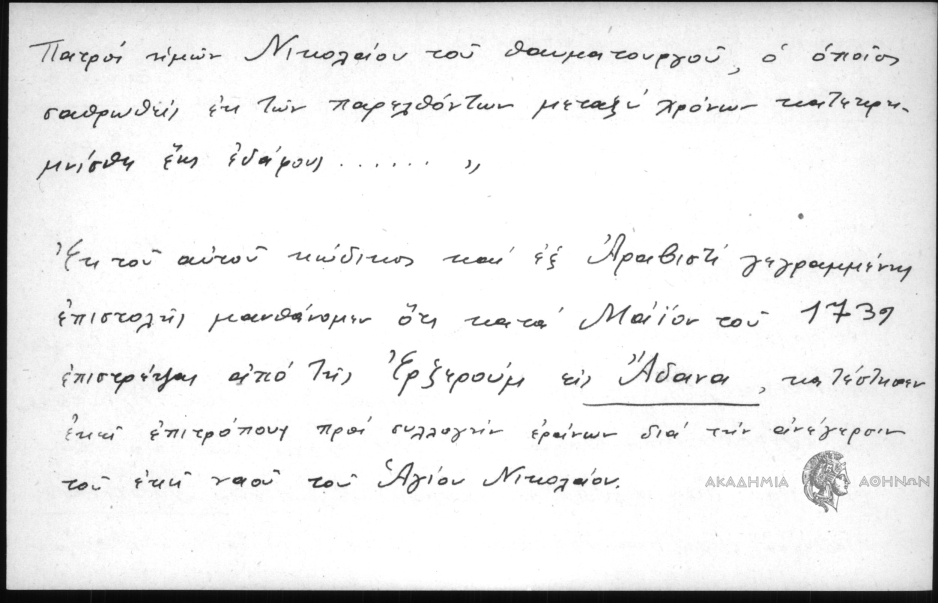 Πατρός ἡμῶν Νικολάου τοῦ θαυματουργοῦ, ὁ ὁποῖος
σαθρωθείς ἐκ τῶν παρελθόντων μεταξύ χρόνων κατεκρη-
μνίσθη ἕως ἐδάφους ...... „
Ἐκ τοῦ αὐτοῦ κώδικος καί ἐξ Ἀραβιστί γεγραμμένης
ἐπιστολῆς μανθάνομεν ὅτι κατά Μάϊον τοῦ 1739
ἐπιστρέψας ἀπό τῆς Ἐρζερούμ εἰς Ἄδανα, κατέστησεν
ἐκεῖ ἐπιτρόπους πρός συλλογήν ἐράνων διά τήν ἀνέγερσιν
τοῦ ἐκεῖ ναοῦ τοῦ Ἁγίου Νικολάου.
ΑΚΑΔΗΜΙΑ ΑΘΗΝΩΝ